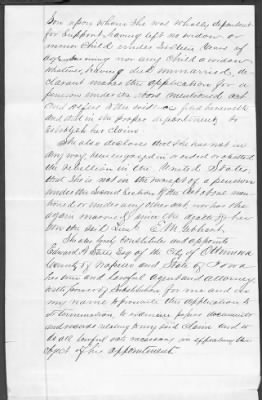 Son upon whom she was wholly dependent
for support, having left no widow or
minor Child under Sixteen Years of
age surviving nor any Child or widow
whatever, having died unmarried, de-
clarant makes this application for a
pension under the above mentioned act
and refers to the evidence filed herewith
and that in the proper department to
establish her claim
She also declares that she has not in
any way been engaged in or aided or abetted
the rebellion in the United States,
that she is not in the receipt of a pension
under the Second Section of the act above men-
tioned or under any other act, nor has she
again married since the death of her
son the said Lieut E. M. Gebhart.
She also hereby Constitutes and appoints
Edward H. Stiles Esq of the City of Ottumwa
County of Wapello and State of Iowa
her true and lawful agent and attorney
with power of Substitution for me and in
my name to prosecute this application to
its termination, to examine papers documents
and records relating to my said claim and to
do all lawful acts necessary in effecting the
object of his appointment